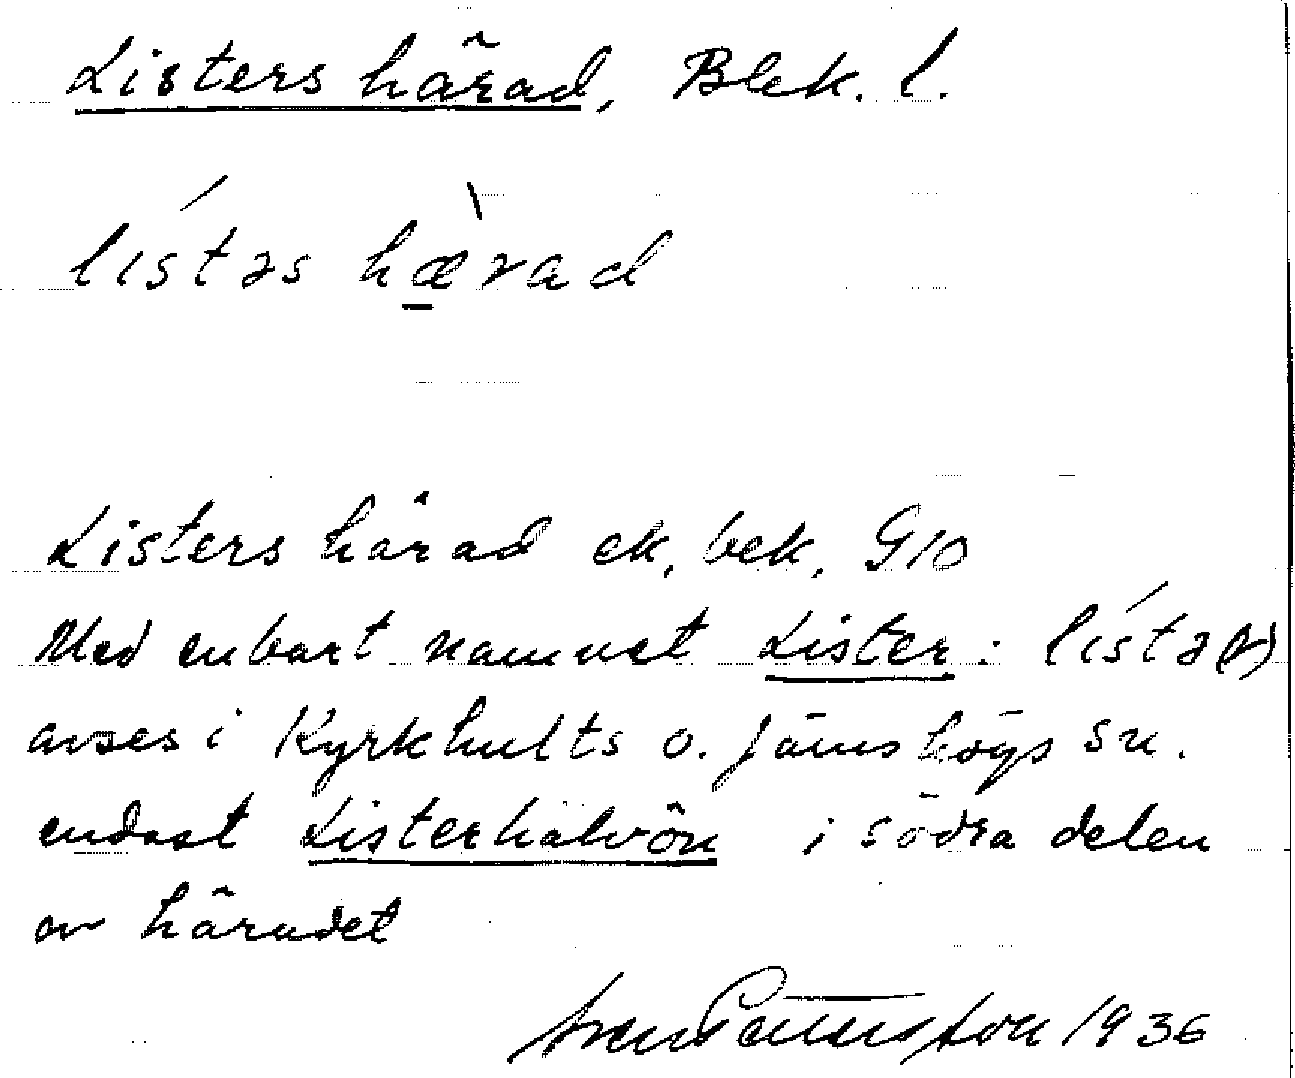 Listers härad, Blek. l.
lístəs hæ̀rad
Listers härad ek. bek. G10
Med enbart namnet Lister : lístə(r)
avses i Kyrkhults o. Jämshögs sn.
endast Listerhalvön i södra delen
av häradet
Sven Pettersson 1936